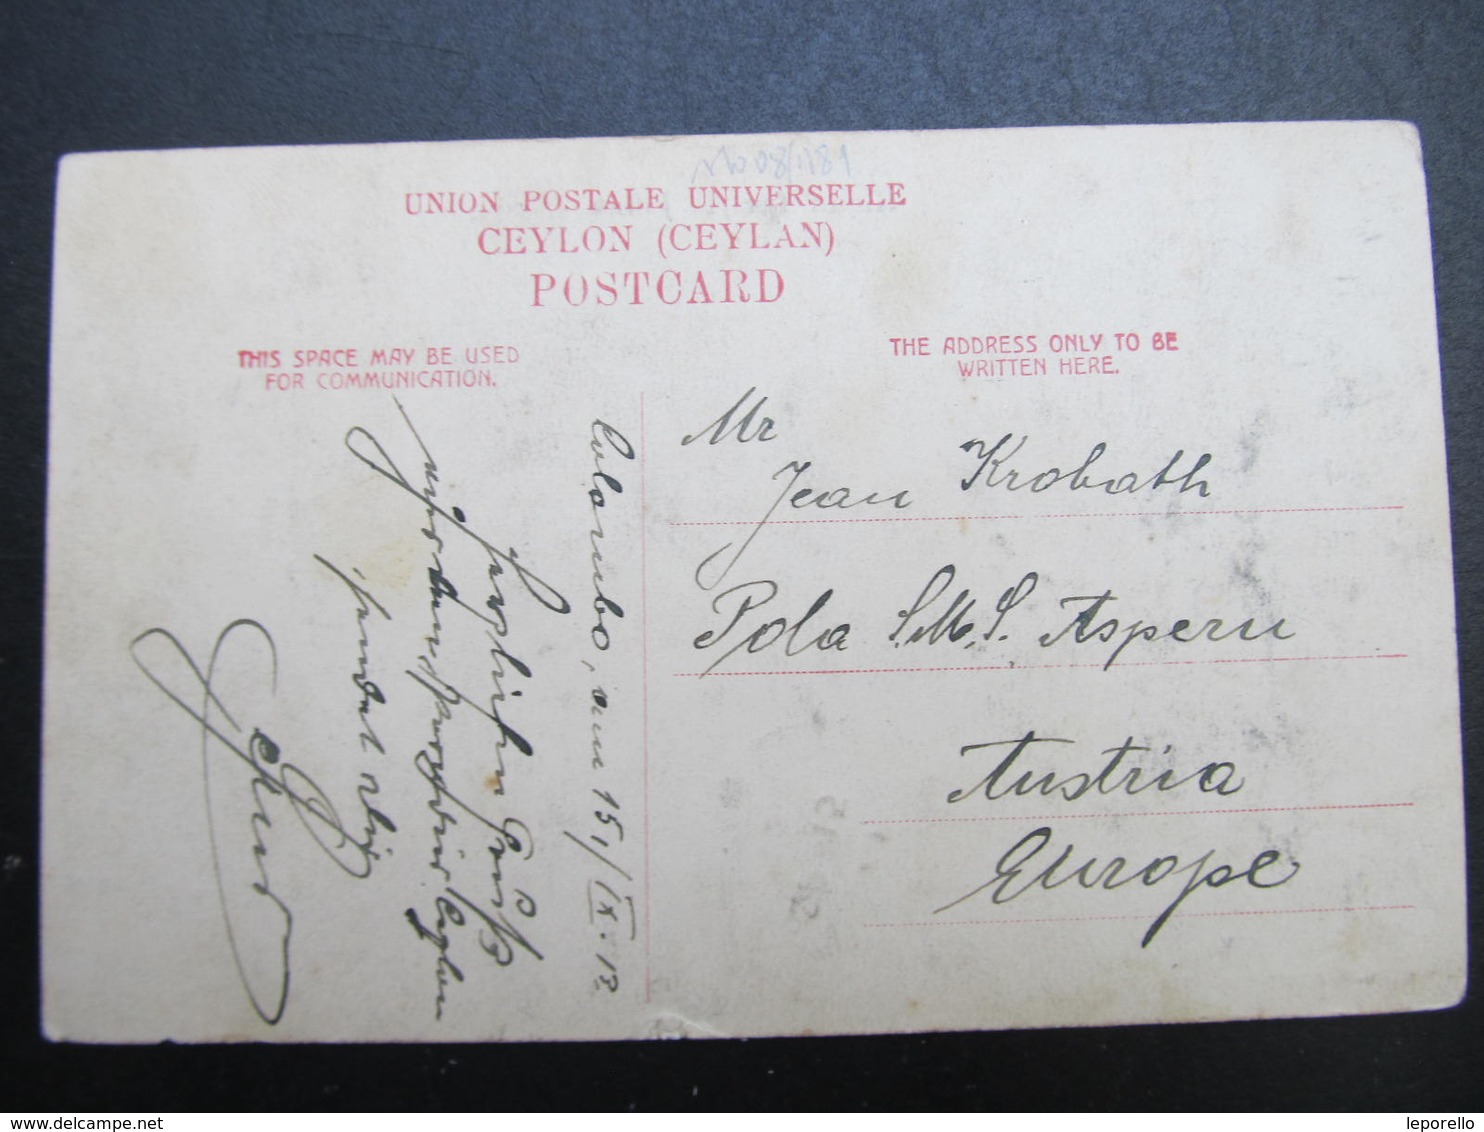 UNION POSTALE UNIVERSELLE
CEYLON (CEYLAN)
POSTCARD
THIS SPACE MAY BE USED
FOR COMMUNICATION.
THE ADDRESS ONLY TO BE
WRITTEN HERE.
Colombo, am 15./IX. 12
Herzlichen Gruß
Ceylon
sendet dir
Mr
Jean Krobath
Pola S.M.S. Aspern
Austria
Europe
delcampe.net
leporello